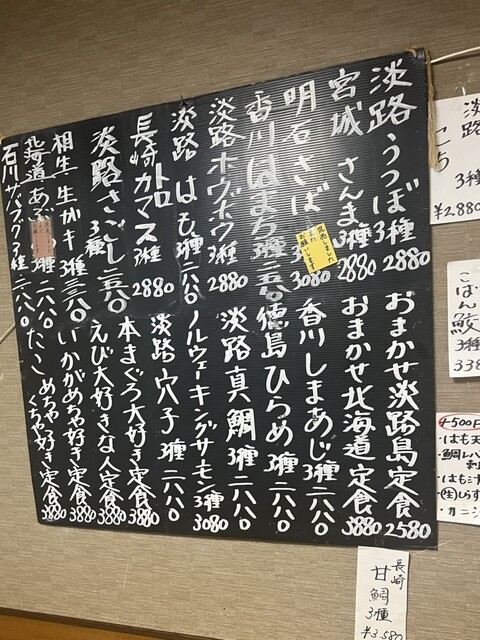 淡路うつぼ3種2880
宮城さんま3種2880
明石さば3種3080
香川はまち3種二五八〇
淡路ホウボウ3種2880
淡路はも3種二八八〇
長崎トロカマス3種2880
淡路さごし3種二五八〇
相生生かキ3種
北海道あぶ3種二八八〇
石川
おまかせ淡路島定食2580
おまかせ北海道定食3880
香川しまあじ3種二八八〇
徳島ひらめ3種二八八〇
淡路真鯛3種二八八〇
ノルウェーキングサーモン3種3080
淡路穴子3種二八八〇
本まぐろ大好き定食3880
えび大好きな人定食3880
いかがめちゃ好き定食3880
たこめちゃくちゃ好き定食3880
売切しました
また
お願いします
淡路
3種
¥2.880
こばん鮫
3種
338
+500円
・はも天
・鯛レバ
刺
・はも汁
・(生)しらす
・カニ
長崎
甘鯛
3種
¥3.580